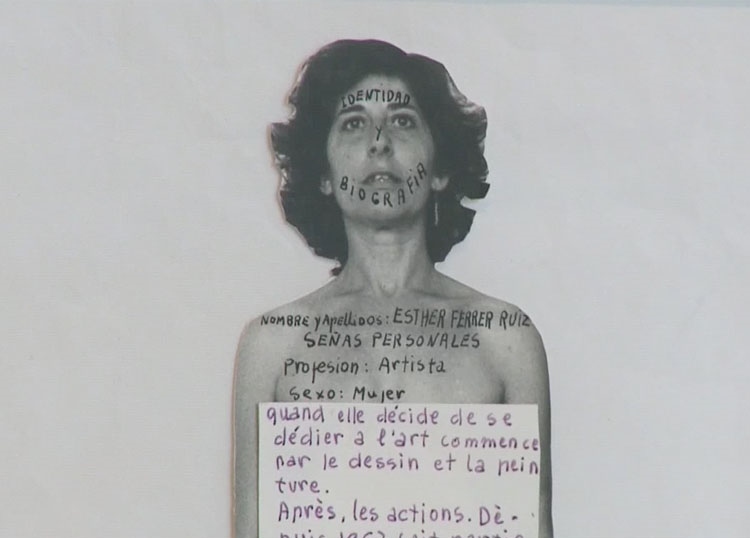 IDENTIDAD
Y
BIOGRAFIA
NOMBRE y Apellidos: ESTHER FERRER RUIZ
SEÑAS PERSONALES
Profesion: Artista
Sexo: Mujer
quand elle décide de se
dédier a l'art commence
par le dessin et la pein
ture.
Après, les actions. Dè-